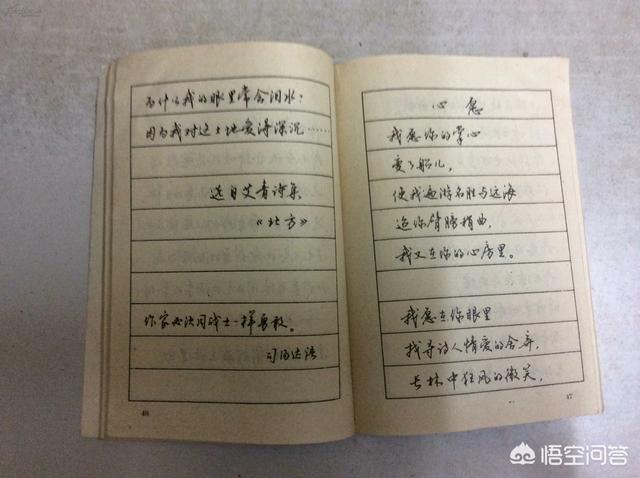 为什么我的眼里常含泪水?
因为我对这土地爱得深沉……
选自艾青诗集
《北方》
作家必须同战士一样勇敢。
司汤达语
46
心愿
我愿你的掌心
变了船儿,
使我遍游名胜与远海
迨你臂膀稍曲,
我又在你的心房里。
我愿在你眼里
找寻诗人情爱的舍弃,
长林中狂风的微笑,
47
悟空问答